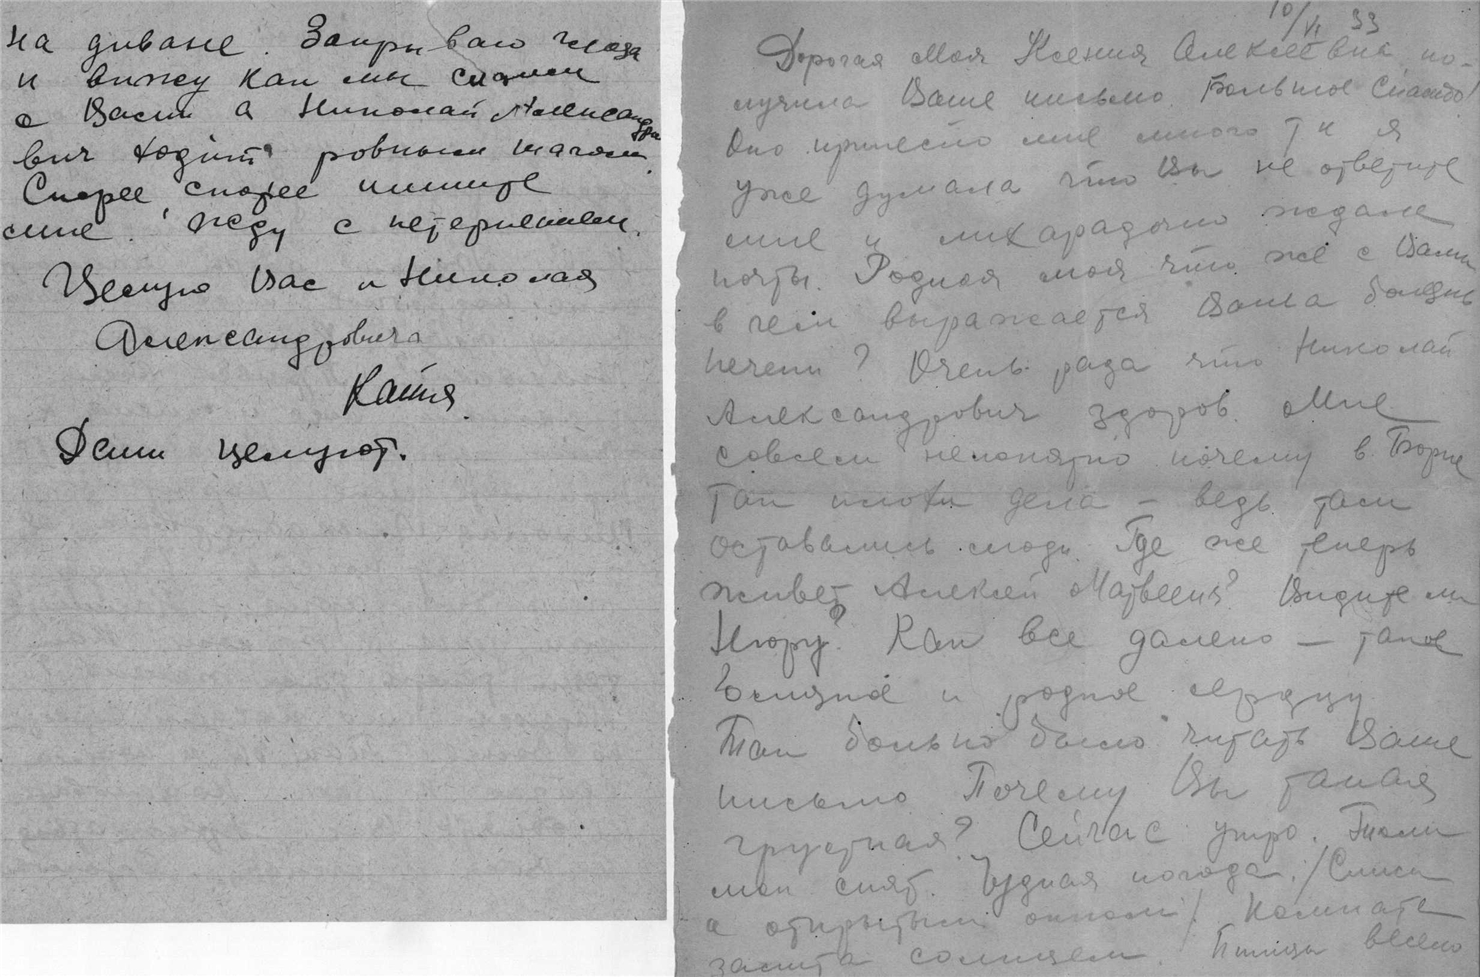 на диване. Закрываю глаза
и вижу как мы сидим
с Вами а Николай Александро
вич ходит ровными шагами.
Скорее, скорее пишите
мне. Жду с нетерпением.
Целую Вас и Николая
Александровича
Катя
Деми целуют.
10/VI 33
Дорогая моя Ксения Алексеевна, по-
лучила Ваше письмо. Большое Спасибо!
Оно принесло мне много т к я
уже думала что Вы не ответите
мне и лихорадочно ждала
почты. Родная моя что же с Вами
в чем выражается Ваша болезнь
печени? Очень рада что Николай
Александрович здоров. Мне
совсем непонятно почему в Борке
так плохи дела — ведь там
оставались люди. Где же теперь
живет Алексей Матвеевич? Видите ли
Нюру? Как все далеко — такое
близкое и родное сердцу
Так больно было читать Ваше
письмо Почему Вы такая
грустная? Сейчас утро.
мои спят. Чудная погода. /Спим
с открытым окном/ Комната
залита солнцем. Птицы весело